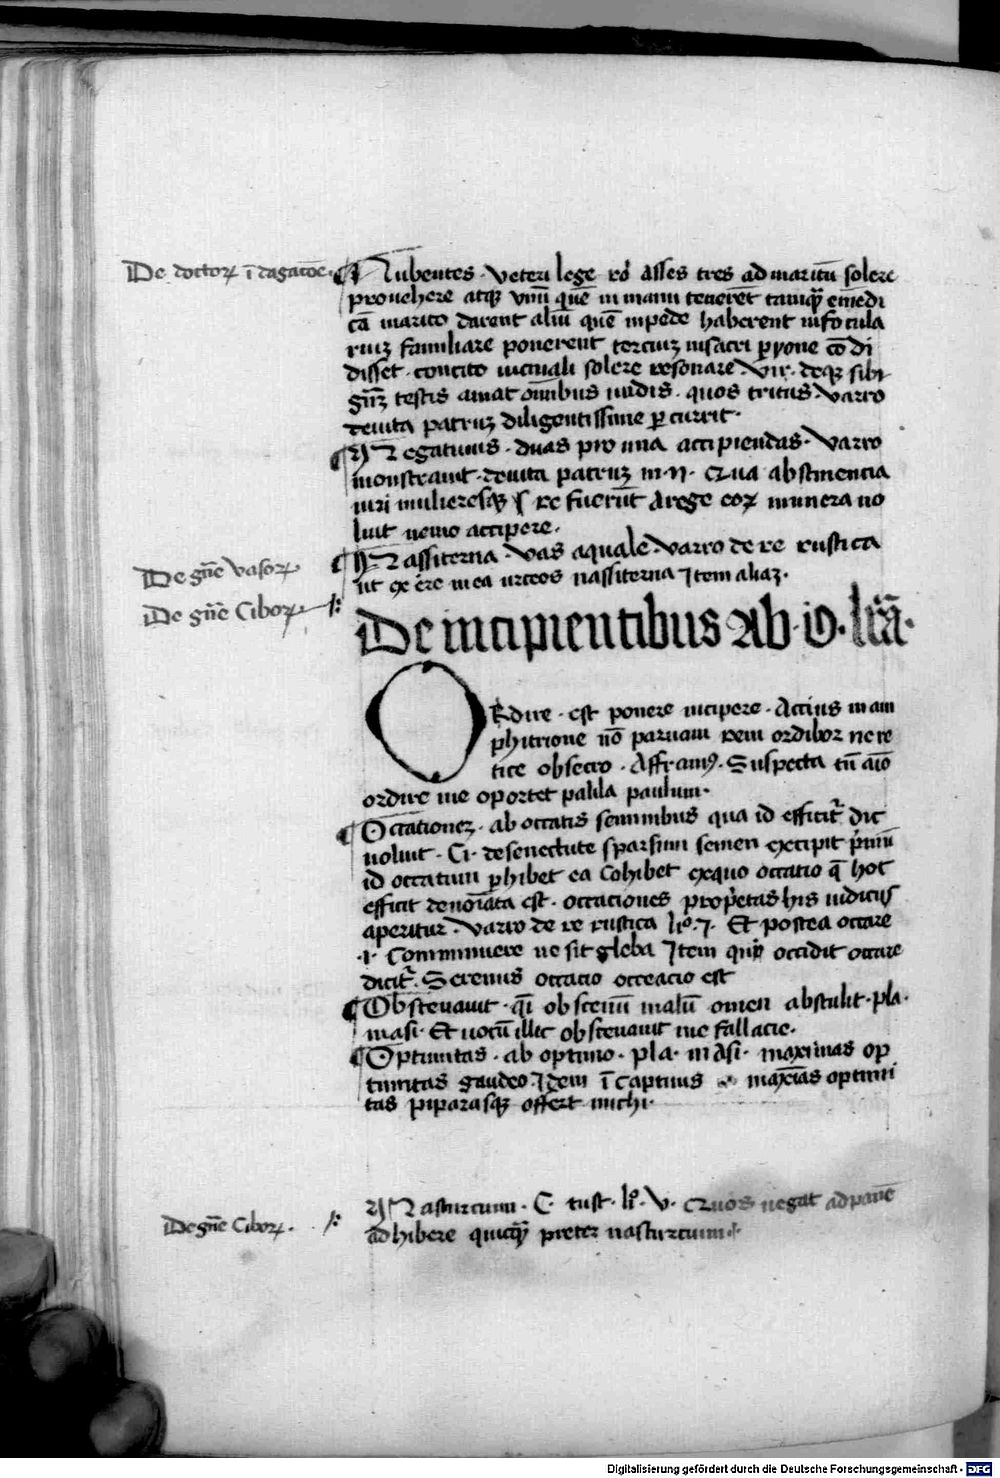 De doctorꝝ ī dagatōe.
Nubentes · veteri lege ro᷒ asses tres ad maritū solere
prouehere atqꝫ vnū quē in manu tenerēt tanqꝫ emēdi
cā marito darent aliū quē inpede haberent infocula
riuꝫ familiare ponerent terciuꝫ insacri ꝑyone cōdi
disset · concito uictuali solere resonare · Vir · deqꝫ sibi
testis amat oīnibus nudis · quos tritus · Varro
deuita patruꝫ diligentissime ꝑcurrit ·
Negatiuus · duas pro una accipiendas · Varro
monstrauit · deuita patruꝫ in · n · Qua abstinencia
uiri mulieresqꝫ re fuerūt Arege eoꝝ munera no
luit nemo accipere ·
De gn̄e vasoꝝ
Nassiterna · vas aquale · Varro de re rustica
ut ex ere mea urceos nassiterna Item aliaꝫ ·
De gn̄e Ciboꝝ
De incipientibus ab · O · lr̄a ·
ORdire · est ponere incipere · Accius in am
phitrione nō paruam rem ordibor ne re
tice obsecro · Affranꝰ · Suspecta tū aīo
ordire me oportet palila paulum ·
Occationeꝫ · ab occatis seminibus qua id efficit᷒ dic
uoluit · Ci · desenectute sparsum semen excipit p̄mū
id occatum ꝑhibet ea Cohibet exquo occatio q̄ hoc
efficit denoīata est · occaciones prop̄etas his indiciis
aperitur · Varro de re rustica li᷒ · 7 · Et postea occare
· i · Comminuere ne sit gleba Item occidit occare
dicit᷒ · Serenus occatio occeacio est
Obsceuauit · qī obscenū malū omen abstulit · pla ·
in asi · Et uotū illic obsceuauit me fallacie ·
Optimitas · ab optimo · pla · in Asi · maximas op
timitas gaudeo · Idem ī captiuis maxīas optimi
tas piparasqꝫ offert michi ·
De gn̄e Ciboꝝ ·
Nasturcium · C · tust · li᷒ · V · Quos negat ad panē
adhibere quicqꝫ preter nasturcium ·
Digitalisierung gefördert durch die Deutsche Forschungsgemeinschaft - DFG